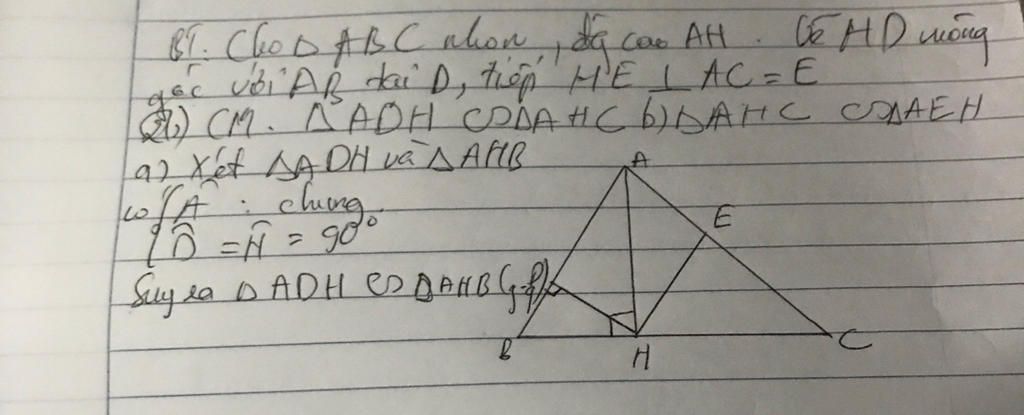 BT. Cho Δ ABC nhọn, đg cao AH. Vẽ HD vuông
góc với AB tại D, tiếp HE ⊥ AC = E
a) CM. Δ ADH ∽ Δ AHC b) Δ AHC ∽ Δ AEH
a) Xét Δ ADH và Δ AHB
có { Â : chung
{ D̂ = Ĥ = 90°
Suy ra Δ ADH ∽ Δ AHB (g-g)
A
E
B
H
C